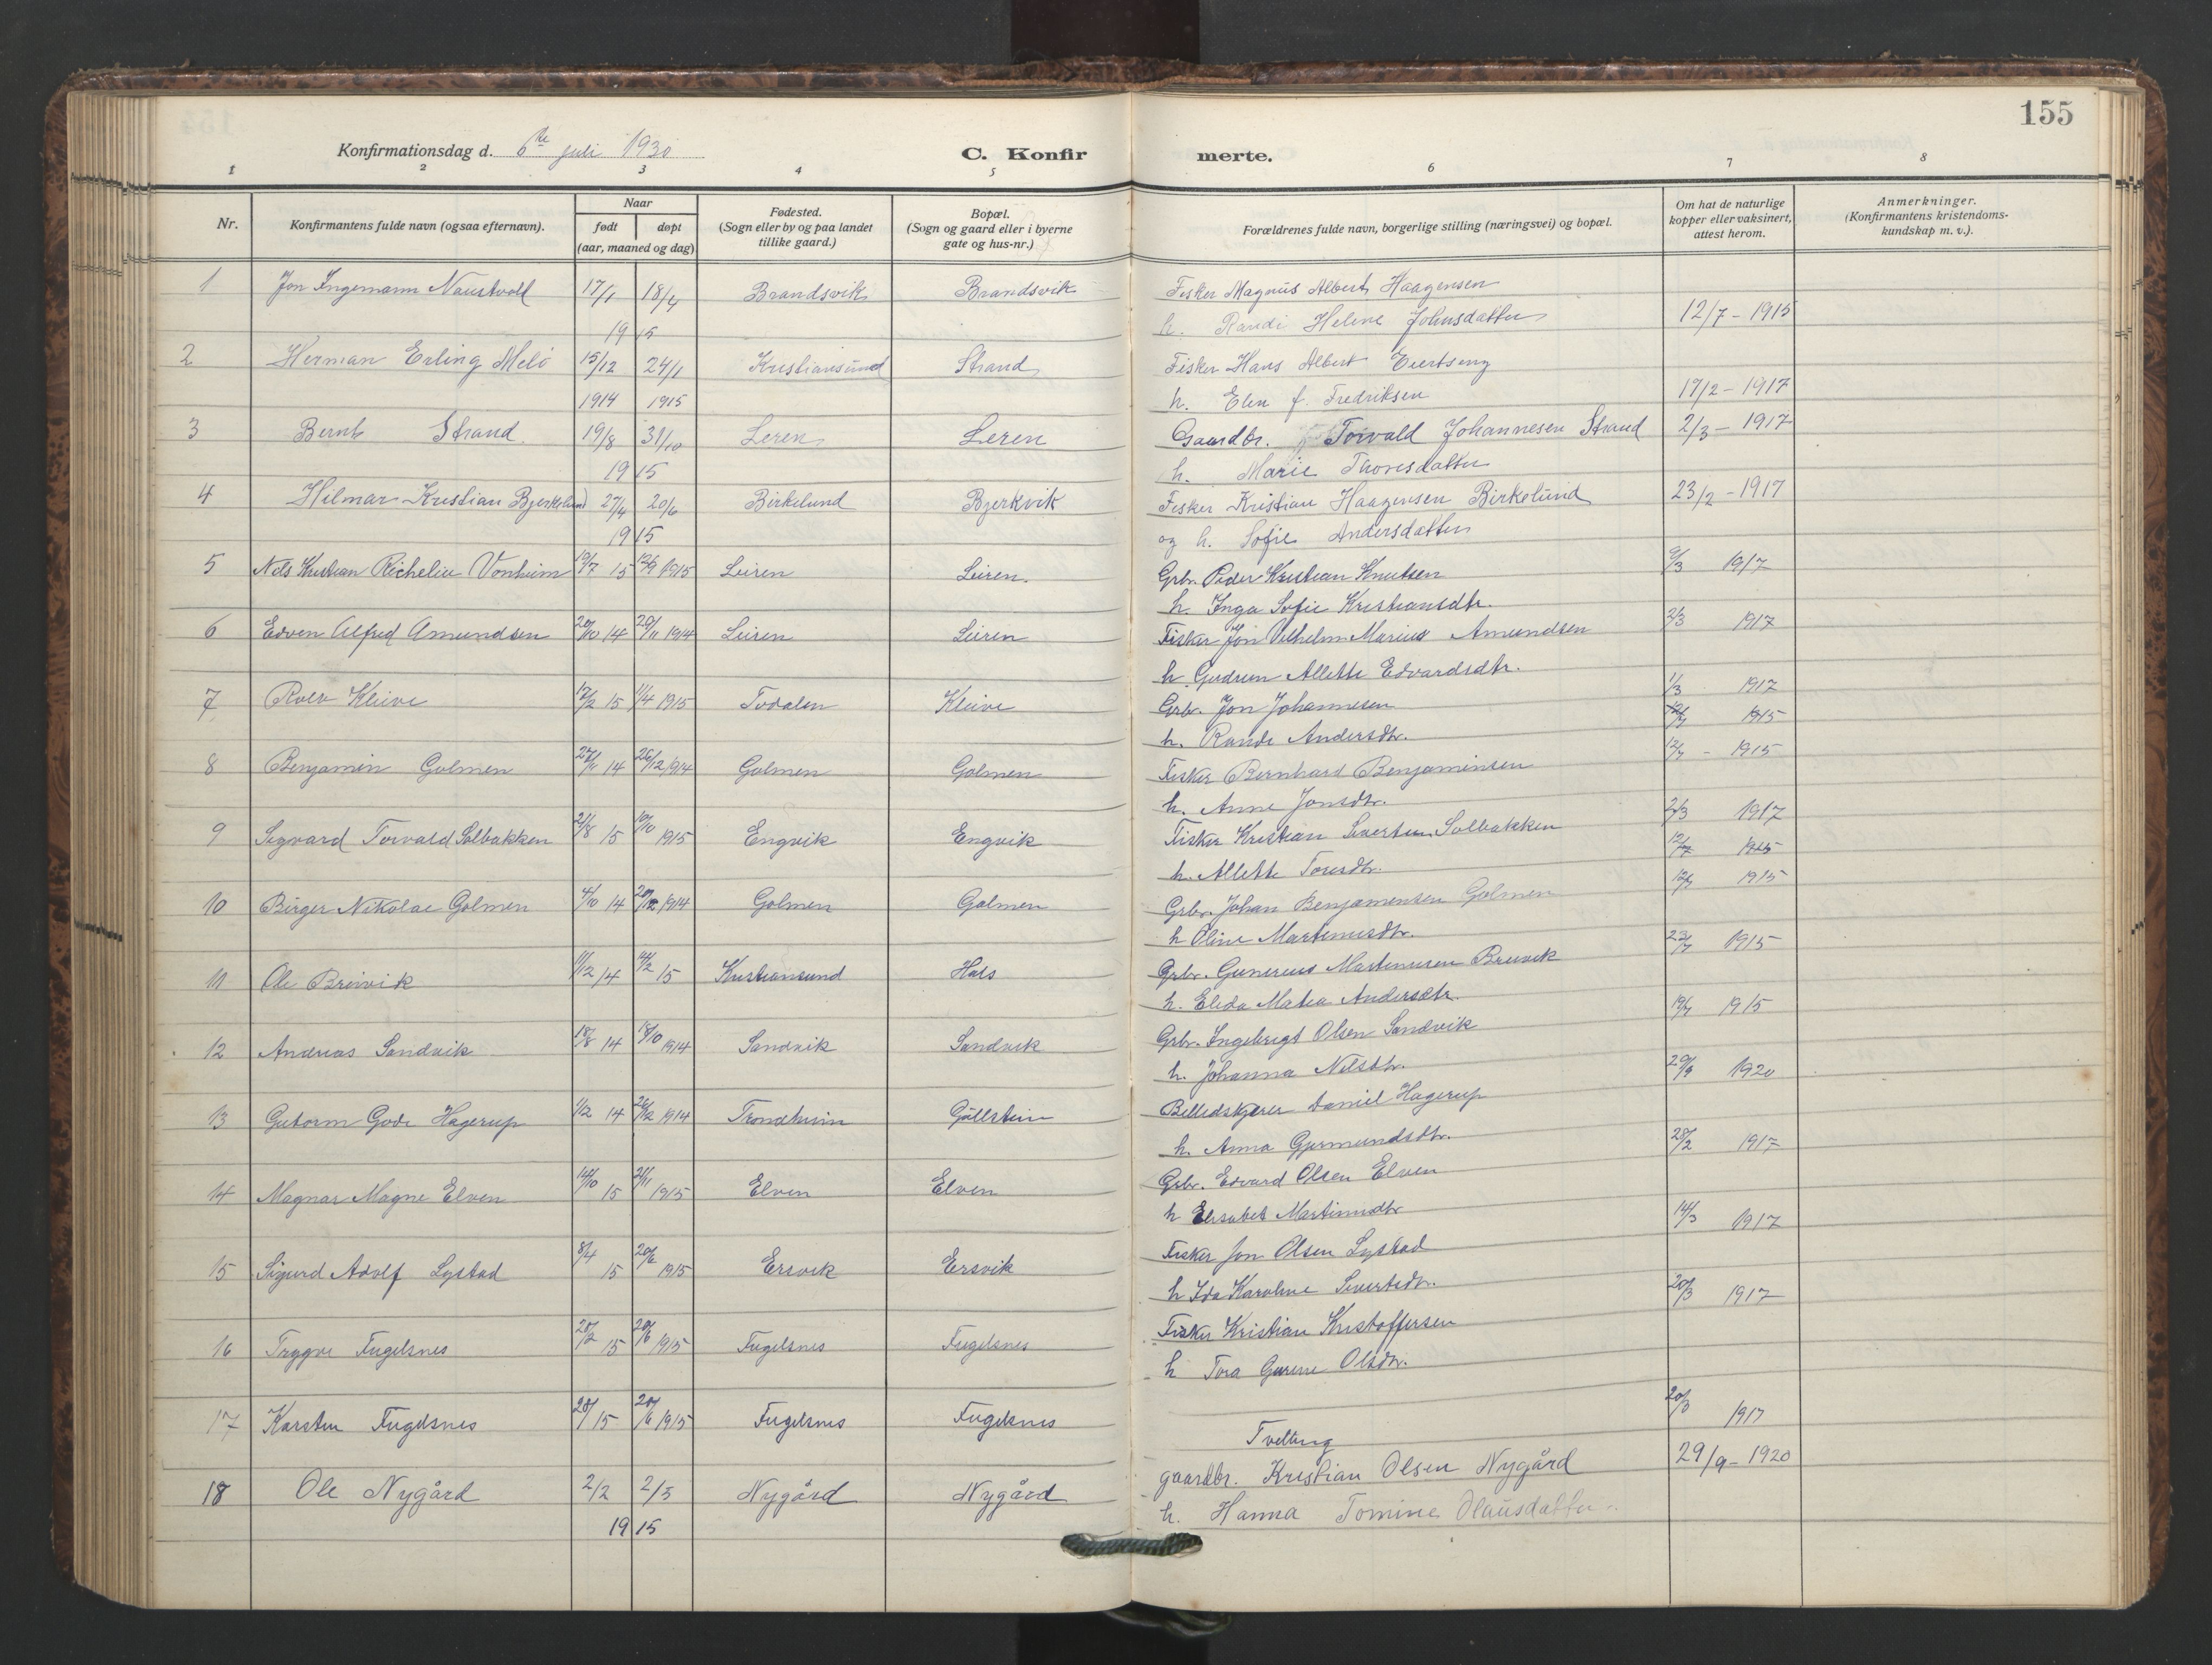 155
Konfirmationsdag d. 6te juli 1930
C. Konfirmerte.
1 2 3 4 5 6 7 8
Nr.
Konfirmantens fulde navn (ogsaa efternavn).
Naar
født
døpt
(aar, maaned og dag)
Fødested.
(Sogn eller by og paa landet
tillike gaard.)
Bopæl.
(Sogn og gaard eller i byerne
gate og hus-nr.)
Forældrenes fulde navn, borgerlige stilling (næringsvei) og bopæl.
Om hat de naturlige
kopper eller vaksinert,
attest herom.
Anmerkninger.
(Konfirmantens kristendoms-
kundskap m. v.).
1 Jon Ingemann Naustvoll 17/1 18/4 Brandsvik Brandsvik Fisker Magnus Albert Haagensen
19 15 h. Randi Helene Johnsdatter 12/7 - 1915
2 Herman Erling Melö 15/12 24/1 Kristiansund Strand Fisker Hans Albert
1914 1915 h. Elen f. Fredriksen 17/2 - 1917
3 Bernt Strand. 19/8 31/10 Leren Leren Gaardbr. Torvald Johannesen Strand 2/3 - 1917
19 15 h. Marie Thoresdatter
4 Hilmar Kristian Bjerkelund 27/4 20/6 Birkelund Bjerkvik Fisker Kristian Haagensen Birkelund 23/2 - 1917
19 15 og h. Sofie Andersdatter
5 Nils Kristian Richeliu Vonheim 19/7 15 1915 Leiren Leiren. Grbr. Peder Kristian Knutsen 9/3 1917
h. Inga Sofie Kristiansdtr.
6 Edven Alfred Amundsen 20/10 14 29/11 1914 Leiren Leiren Fisker Jon Vilhelm Marius Amundsen 2/3 1917
h. Gudrun Allette Edvardsdtr.
7 Rolv Kleive 17/2 15 11/4 1915 Todalen Kleive Grbr. Jon Johannesen 1/3 1917
h. Rande Andersdtr. 12/7 1915
8 Benjamin Golmen 27/11 14 26/12 1914 Golmen Golmen Fisker Bernhard Benjaminsen 12/7 - 1915
h. Anne Jonsdtr.
9 Sigvard Torvald Solbakken 21/8 15 10/10 1915 Engvik Engvik Fisker Kristian Sivertsen Solbakken 2/3 1917
h. Allette Toresdtr. 12/7 1915
10 Birger Nikolai Golmen 4/10 14 20/12 1914 Golmen Golmen Grbr. Johan Benjaminsen Golmen 12/7 1915
h Oline Martinusdtr.
11 Ole Breivik 11/12 14 14/2 15 Kristiansund Hals Grbr. Gunerius Martinusen Breivik 23/7 1915
h. Elida Matea Andersdtr.
12 Andreas Sandvik 18/8 14 18/10 1914 Sandvik Sandvik Grbr. Ingebrigt Olsen Sandvik 19/7 1915
h. Johanna Nilsdtr.
13 Gutorm Gode Hagerup 1/2 14 26/12 1914 Trondheim Gullstein Billedskjærer Daniel Hagerup 29/9 1920
h. Anna Gjermundsdtr.
14 Magnar Magne Elven 14/10 15 21/11 1915 Elven Elven Grbr. Edvard Olsen Elven 28/2 1917
h Elisabet Martinusdtr
15 Sigurd Adolf Lystad 8/4 15 20/6 1915 Ersvik Ersvik Fisker Jon Olsen Lystad 14/3 1917
h Ida Karoline Sivertsdtr.
16 Trygve Fugelsnes 28/2 15 20/6 1915 Fugelsnes Fugelsnes Fisker Kristian Kristoffersen 20/3 1917
h Tora Gurine Olsdtr.
17 Karsten Fugelsnes 15 20/6 1915 Fugelsnes Fugelsnes Tvelling 20/3 1917
18 Ole Nygård 2/2 2/5 Nygård Nygård gaardbr. Kristian Olsen Nygård 29/9 - 1920
19 15 h. Hanna Tomine Olausdatter